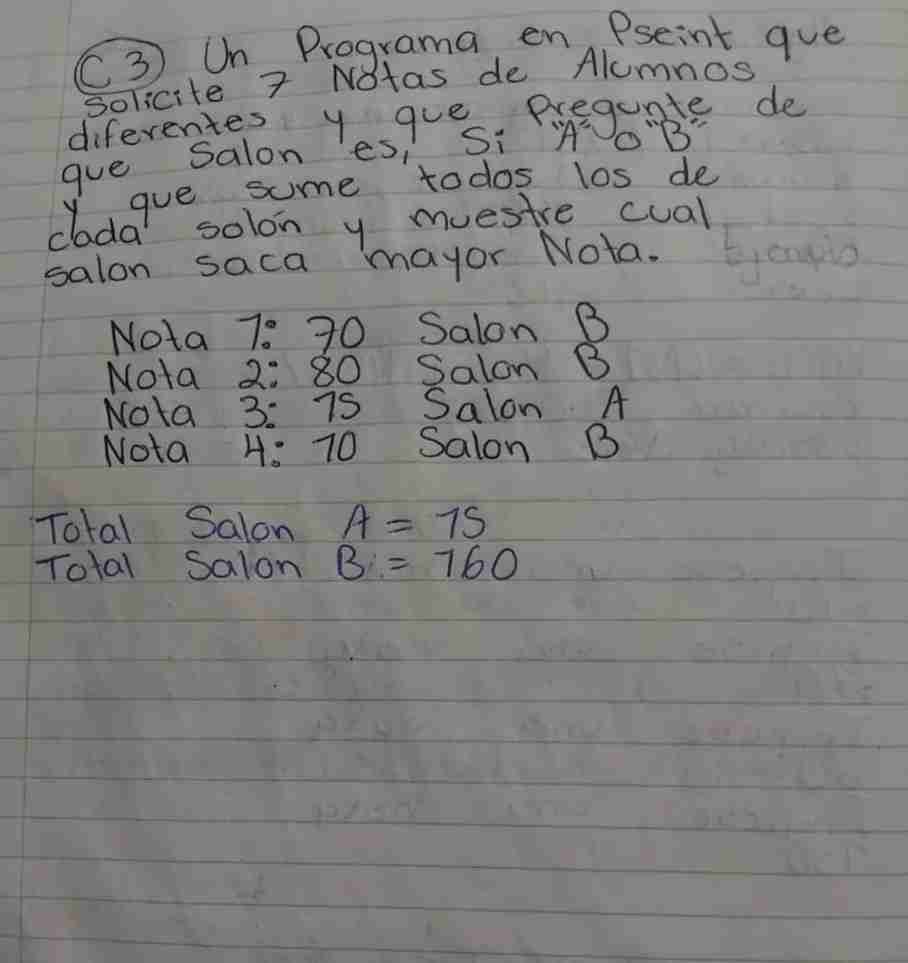 C3) Un Programa en Pseint que
solicite 7 Notas de Alumnos
diferentes y que Pregunte de
que Salon es, Si "A" o "B"
y que sume todos los de
cada solón y muestre cual
salon saca mayor Nota. Ejemplo
Nota 1: 70 Salon B
Nota 2: 80 Salon B
Nota 3: 15 Salon A
Nota 4: 10 Salon B
Total Salon A = 15
Total Salon B = 160